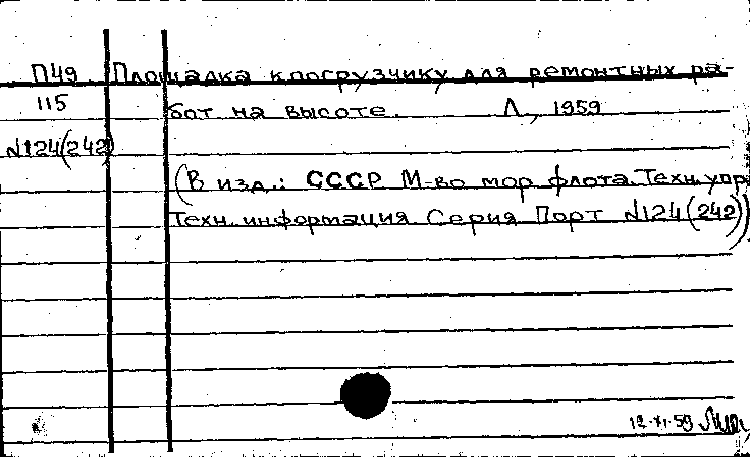 П49. Площадка к погрузчику для ремонтных ра-
115 бот на высоте. Л, 1959
№124(242)
(В изд.: СССР М-во мор флота. Техн. упр
Техн. информация Серия Порт №124(242))
12-XI-59